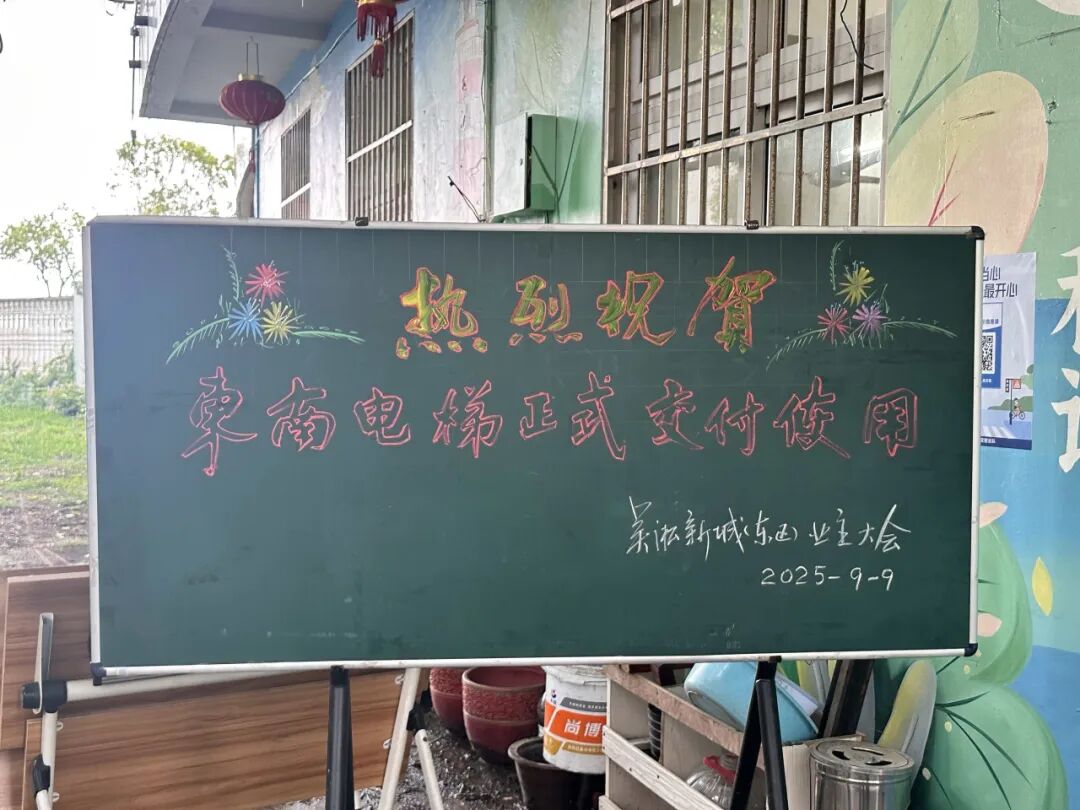 热烈祝賀
東南电梯正式交付使用
吴淞新城(东区)业主大会
2025-9-9
当心
最开心
尚博